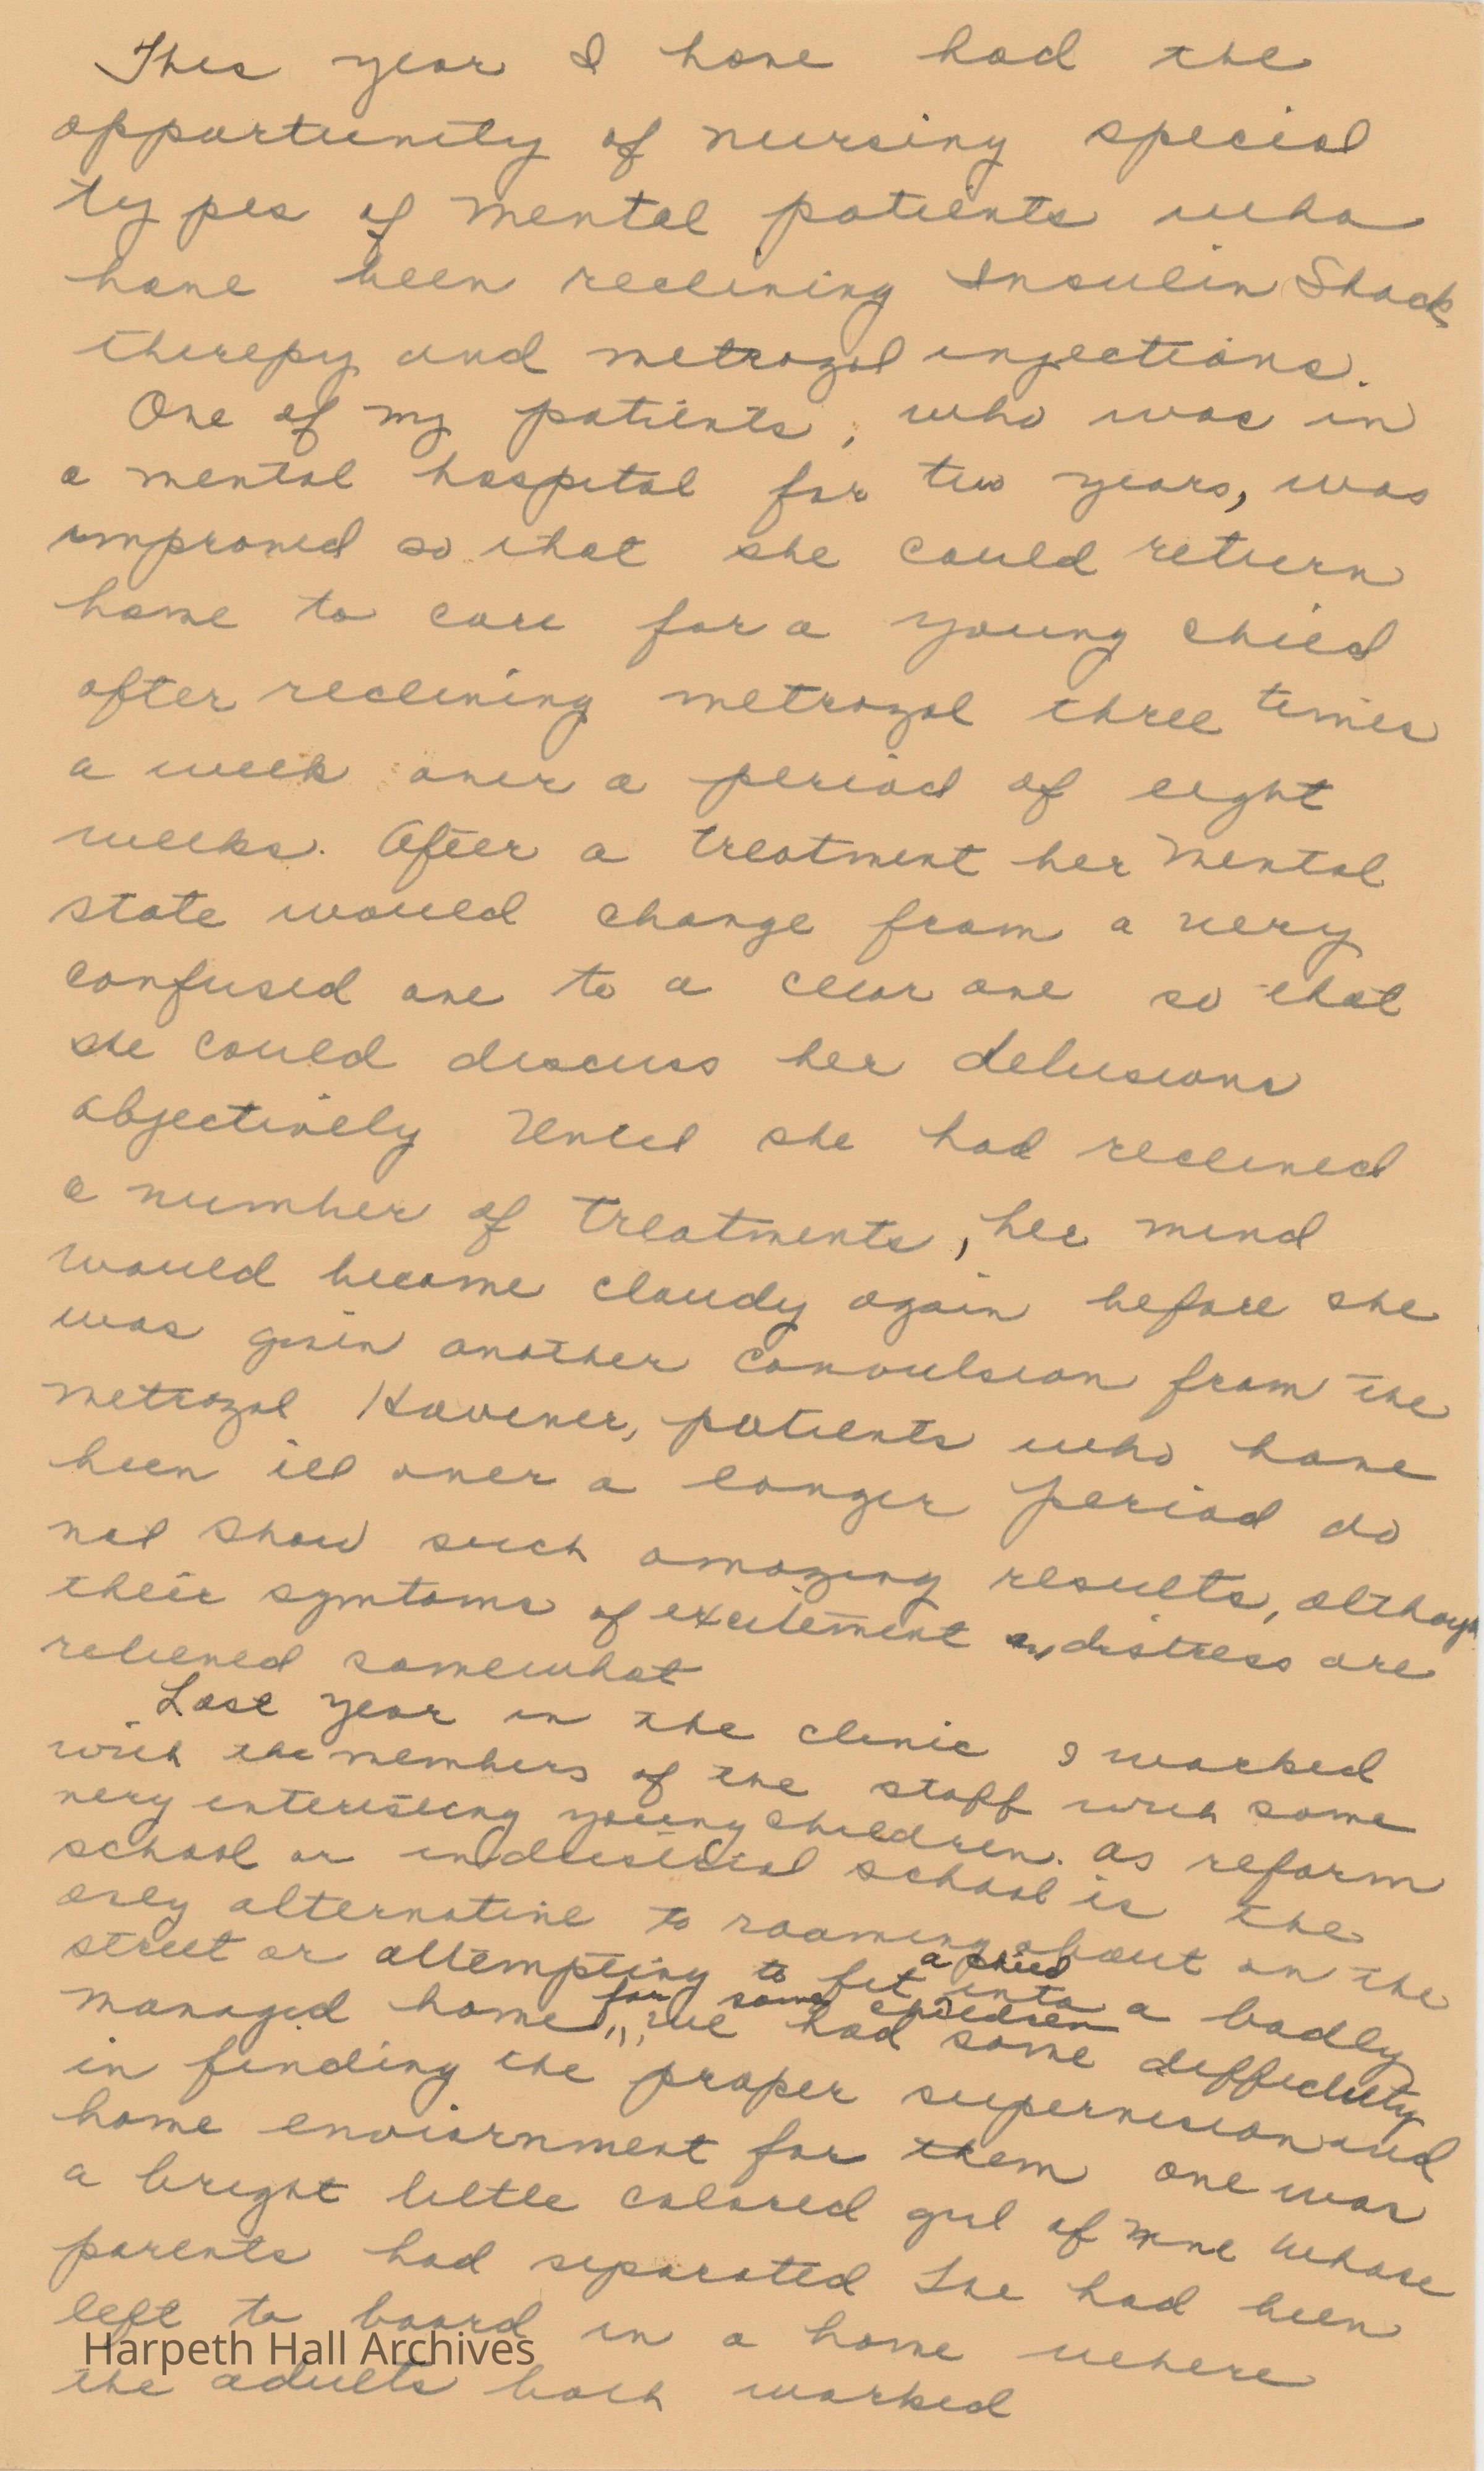 This year I have had the
opportunity of nursing special
types of mental patients who
have been receiving Insulin Shock
therepy and metrazol injections.
One of my patients, who was in
a mental hospital for two years, was
improved so that she could return
home to care for a young child
after receiving metrazol three times
a week over a period of eight
weeks. After a treatment her mental
state would change from a very
confused one to a clear one so that
she could discuss her delusions
objectively Until she had received
a number of treatments, her mind
would become cloudy again before she
was given another convulsion from the
metrazol However, patients who have
been ill over a longer period do
not show such amazing results, although
their symtoms of excitement or distress are
relieved somewhat
Last year in the clinic I worked
with the members of the staff with some
very interesting young children. As reform
school or industrial school is the
only alternative to roaming about on the
a child
street or attempting to fit into a badly
for some children
managed home, we had some difficulty
in finding the proper supervision and
home enviornment for them one was
a bright little colored girl of nine whose
parents had separated She had been
left to board in a home where
Harpeth Hall Archives
the adults both worked